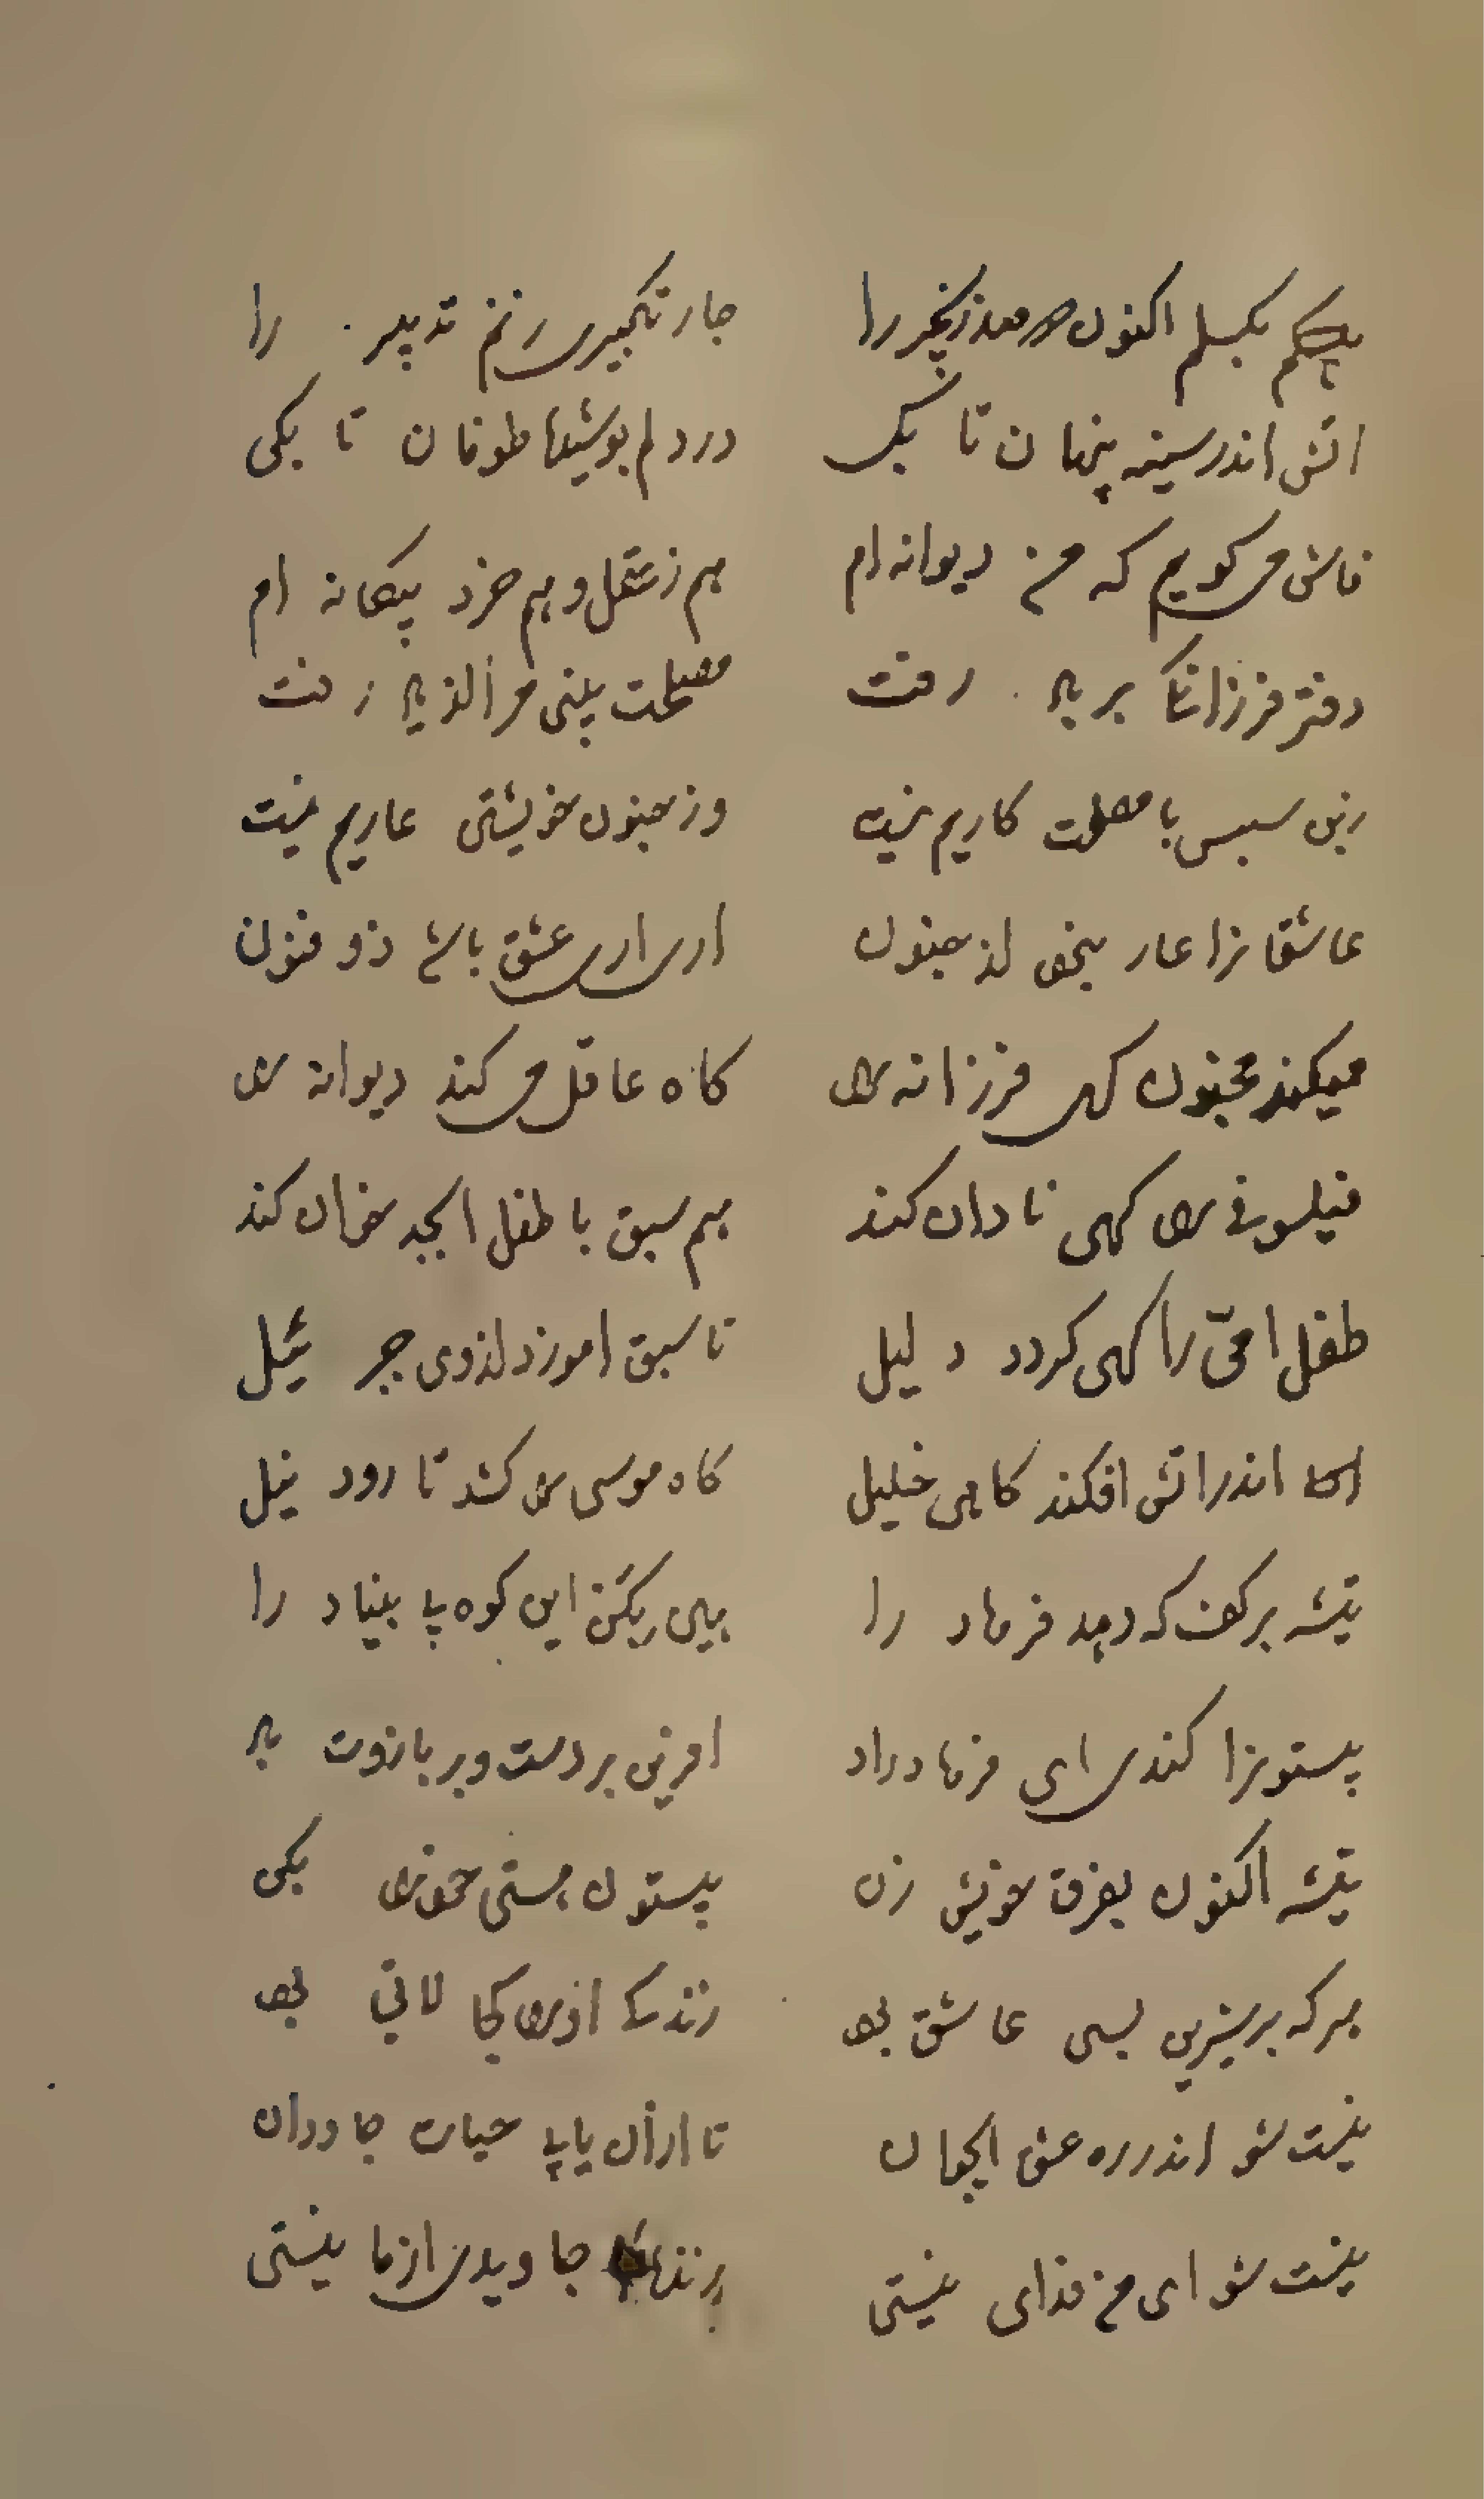 بگسلم اکنون صد زنجیر را چار تکبیری زنم تدبیر را
اتش اندر سینه پنهان تا بکی در دلم پوشیدا طوفان تا بکی
فاش می کویم که من دیوانه ام هم ز عقل و هم خرد بیکانه ام
دفتر فرزانکی بر باد رفت مصلحت بینی مرا از یاد رفت
زین سپس با مصلحت کاریم نیست وز جنون خویشتن عاریم نیست
عاشقانرا عار نبود از جنون ار سرار عشق باشد ذو فنون
میکند مجنون کهی فرزانه را کاه عاقل می کند دیوانه را
فیلسوفی را کهی نادان کند هم سبق با طفل ابجد خوان کند
طفل امّی را کهی کردد دلیل تا سبق اموزد از وی جبرئیل
اندر اتش افکند کاهی خلیل کاه موسی را کشد تا رود نیل
تیشه بر کف که دهد فرهاد را هین بکن این کوه پا بنیاد را
بیستونرا کندی ای فرهاد راد افرین بر دست و بر بازوت باد
تیشه اکنون بفرق خویش زن بیستون هستی خود را بکن
هرکه بر شیرین لبی عاشق بود زندکی او را کجا لایق بود
نیست شو اندر ره عشق ایجوان تا از ان یابی حیات جاودان
نیست شو ای من فدای نیستی زندکی جاویدی از ما نیستی